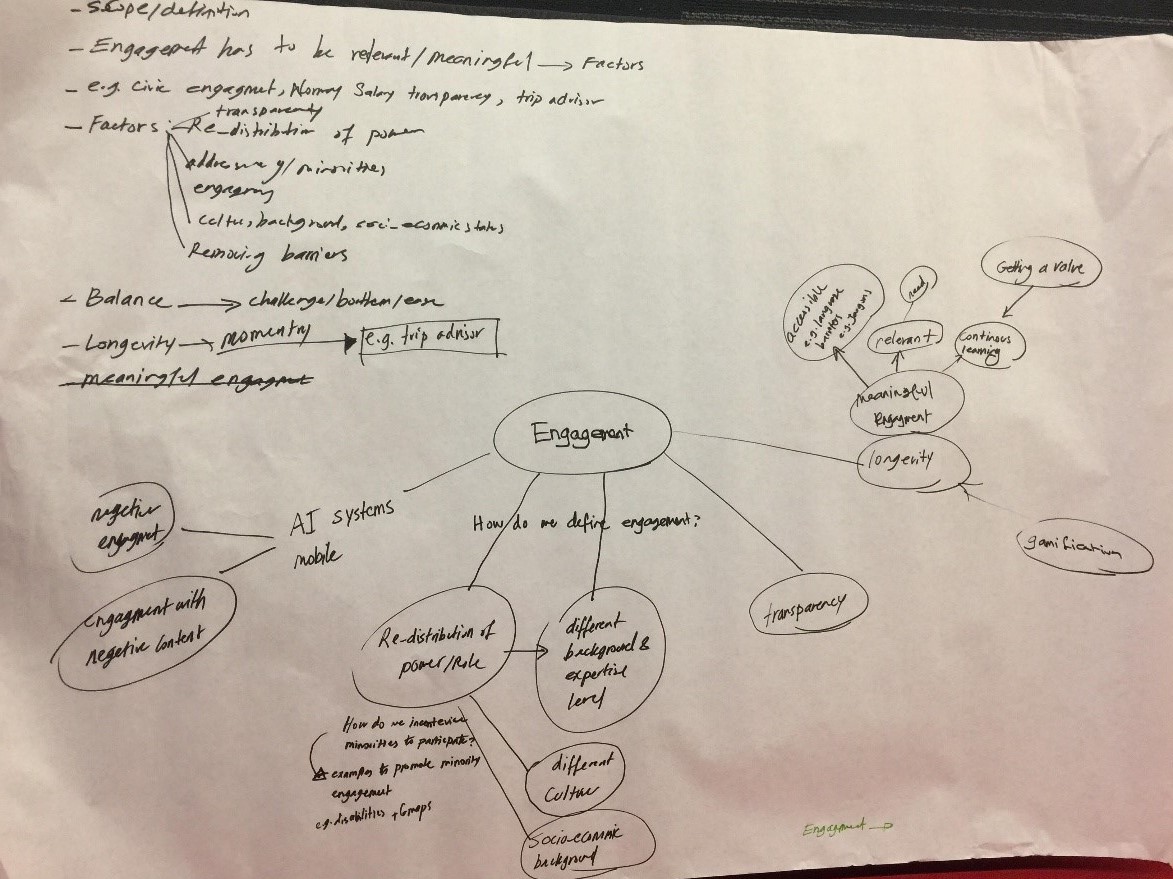 - scope/definition
- Engagement has to be relevant/meaningful → Factors
- e.g. civic engagment, Norway Salary transparency, trip advisor
transparency
- Factors: Re-distribution of power
minorities
engaging
culture, background, soci-economic status
Removing barriers
- Balance → challenge/ease
- Longevity → momentry → e.g. trip advisor
meaningful engagment
Engagement
How do we define engagement?
AI systems
mobile
negetive
engagment
Engagment with
negetive content
Re-distribution of
power/Role
different
background &
expertise
level
How do we
minorities to participate?
examples to promote minority
engagement
e.g. disabilities + Groups
different
Culture
Socioeconomic
background
transparency
longevity
gamification
meaningful
Engagment
accessible
e.g. language
barriers
e.g. Jargons
relevant
need
Continous
learning
Getting a value
Engagment →